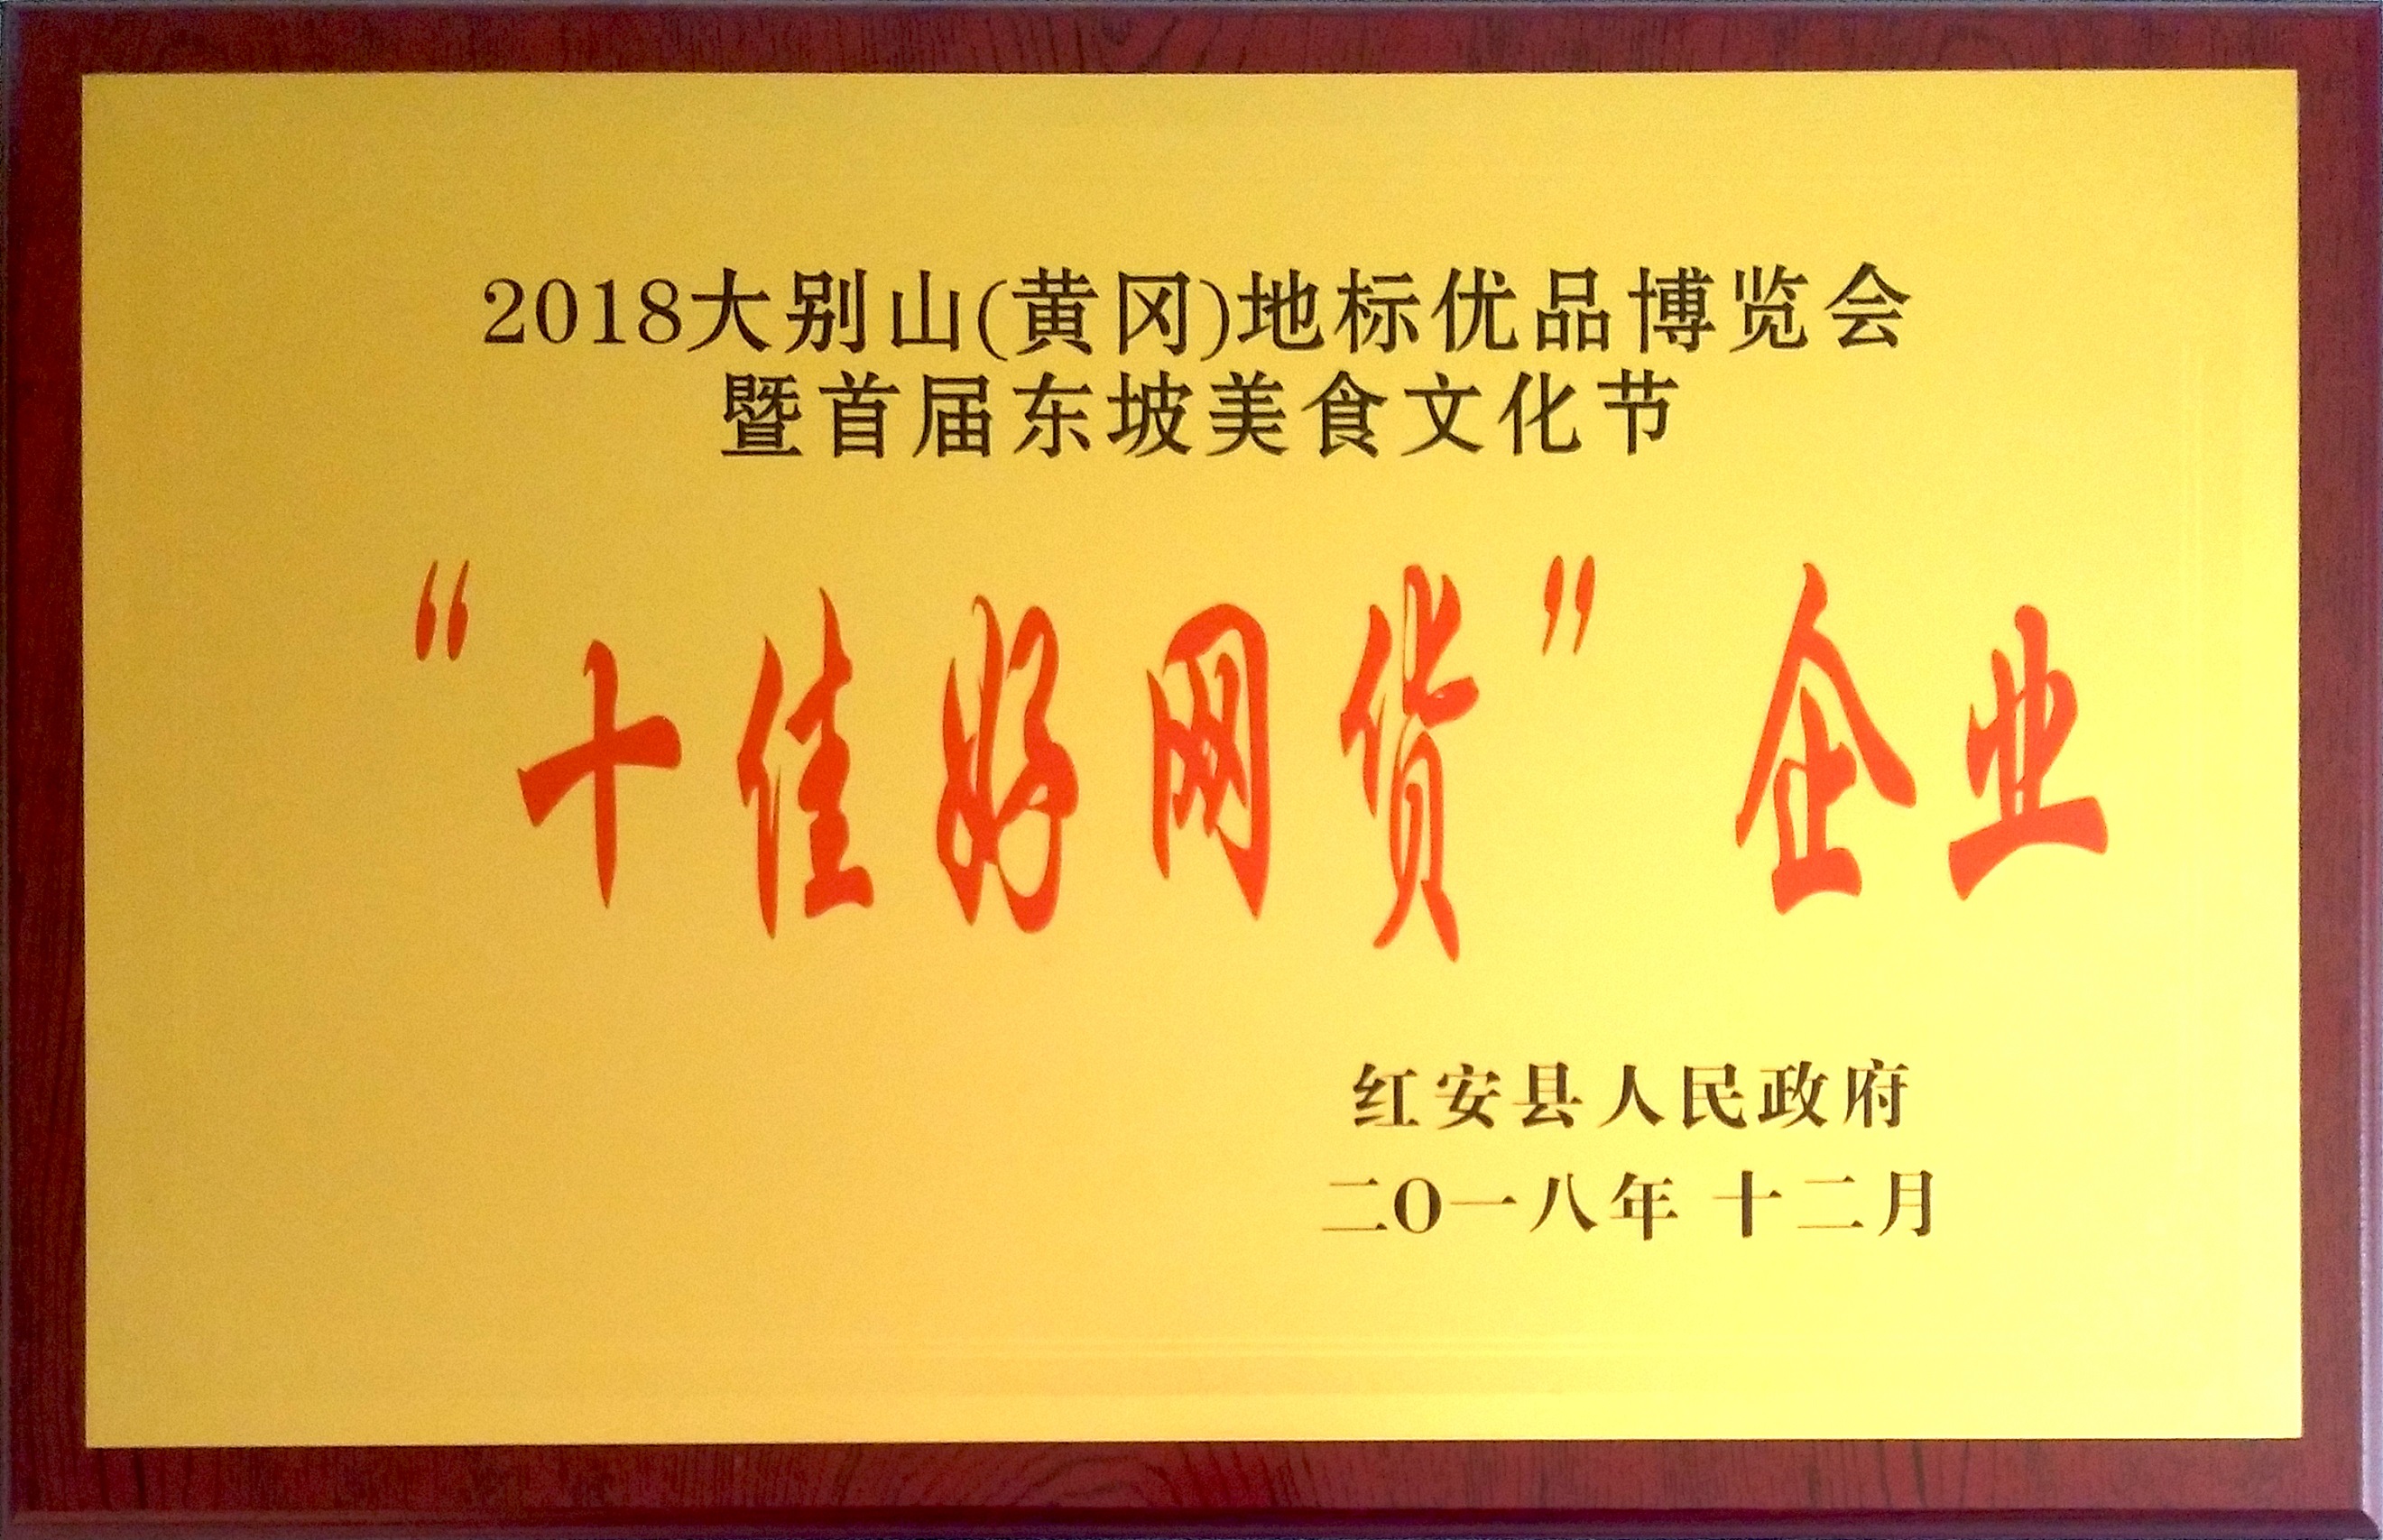 2018大别山(黄冈)地标优品博览会
暨首届东坡美食文化节
“十佳好网货”企业
红安县人民政府
二O一八年 十二月